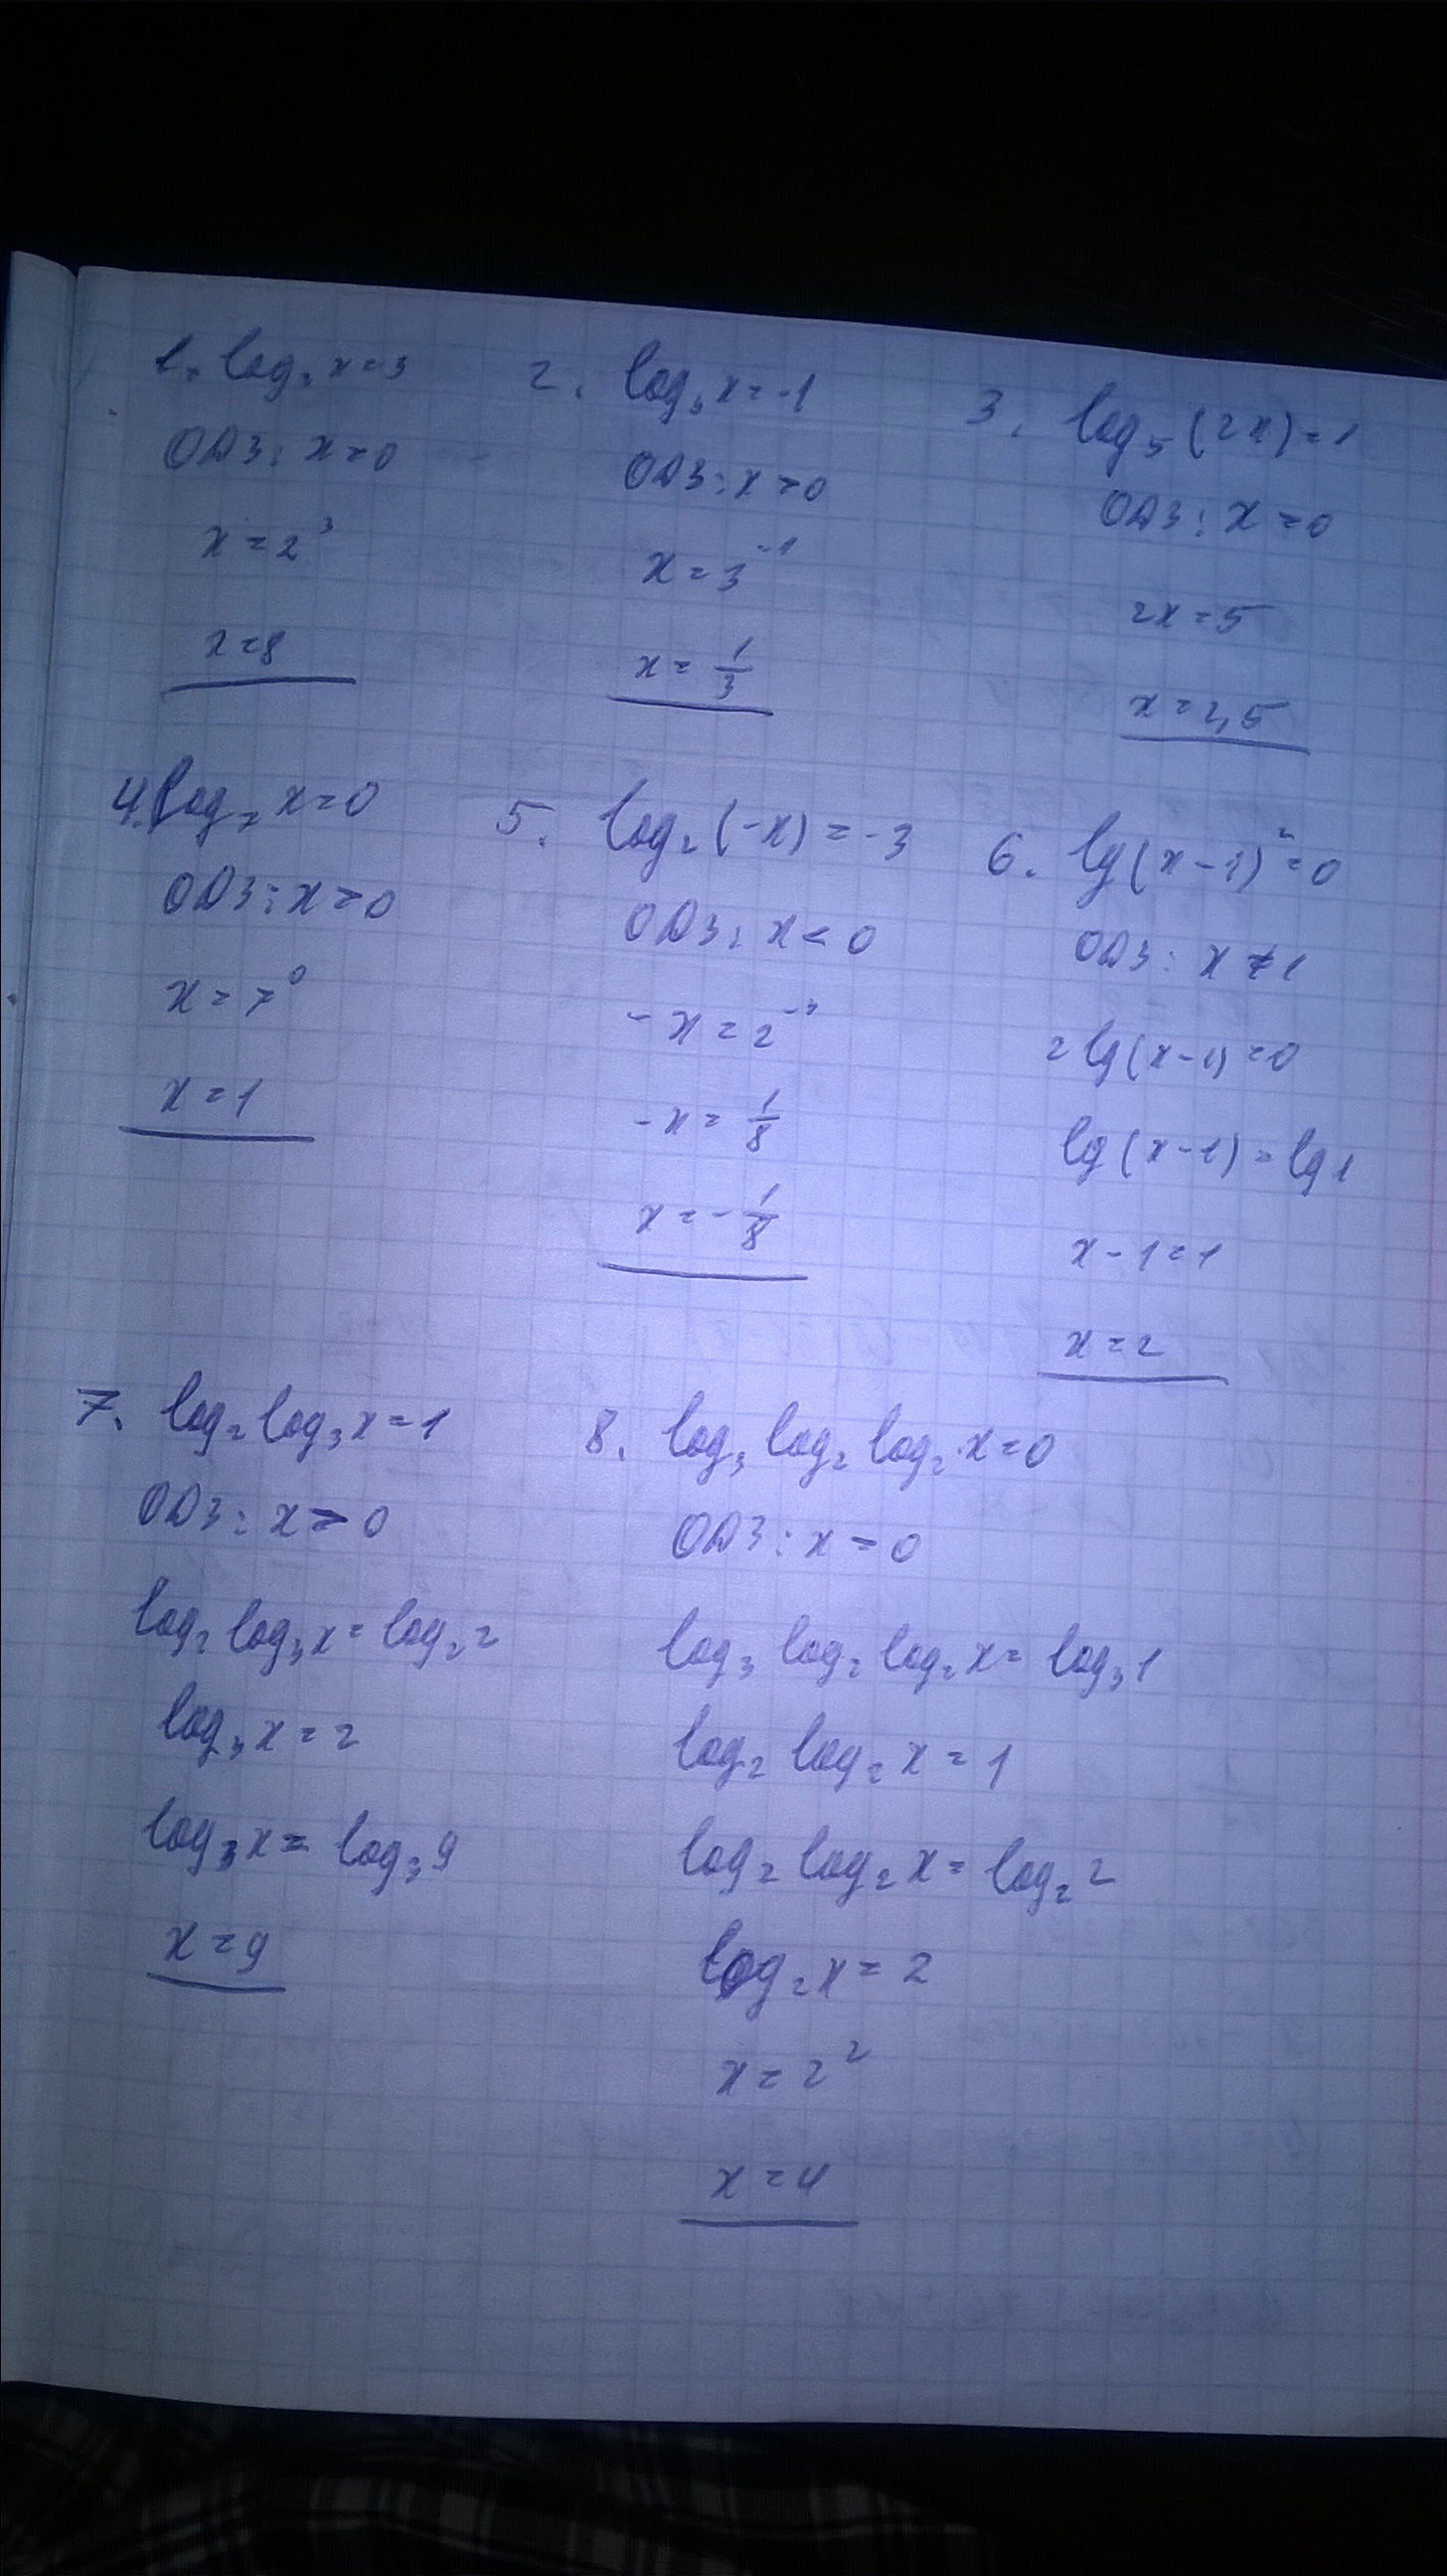 1. log₂ x = 3
ОДЗ: x > 0
x = 2³
x = 8
2. log₃ x = -1
ОДЗ: x > 0
x = 3⁻¹
x = 1/3
3. log₅ (2x) = 1
ОДЗ: x > 0
2x = 5
x = 2,5
4. log₇ x = 0
ОДЗ: x > 0
x = 7⁰
x = 1
5. log₂ (-x) = -3
ОДЗ: x < 0
-x = 2⁻³
-x = 1/8
x = -1/8
6. lg (x-1)² = 0
ОДЗ: x ≠ 1
2 lg (x-1) = 0
lg (x-1) = lg 1
x - 1 = 1
x = 2
7. log₂ log₃ x = 1
ОДЗ: x > 0
log₂ log₃ x = log₂ 2
log₃ x = 2
log₃ x = log₃ 9
x = 9
8. log₃ log₂ log₂ x = 0
ОДЗ: x > 0
log₃ log₂ log₂ x = log₃ 1
log₂ log₂ x = 1
log₂ log₂ x = log₂ 2
log₂ x = 2
x = 2²
x = 4